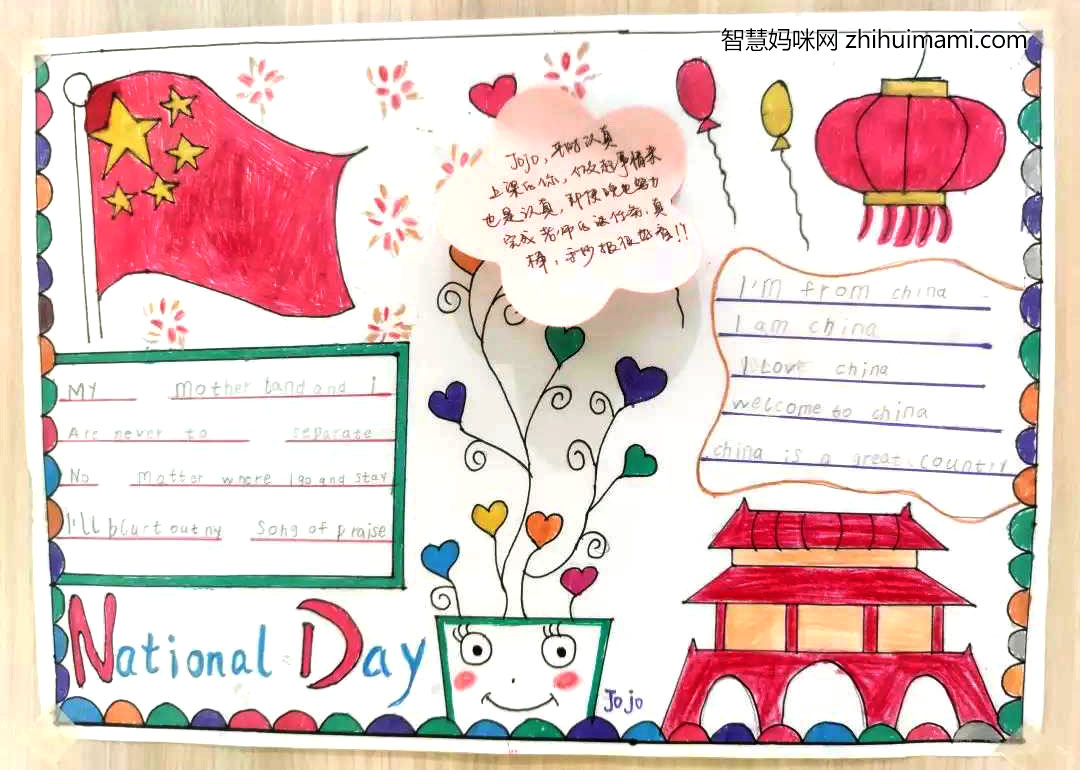 智慧妈咪网 zhihuimami.com
Jojo，平时认真
上课的你，做起事情来
也是认真，即使晚也努力
完成老师的课任务，真
棒，手抄报很好看!!
I'm from china
I am china
I Love china
welcome to china
china is a great country
My mother land and I
Are never to separate
No matter where I go and stay
I'll blurt out my song of praise
National Day
Jojo